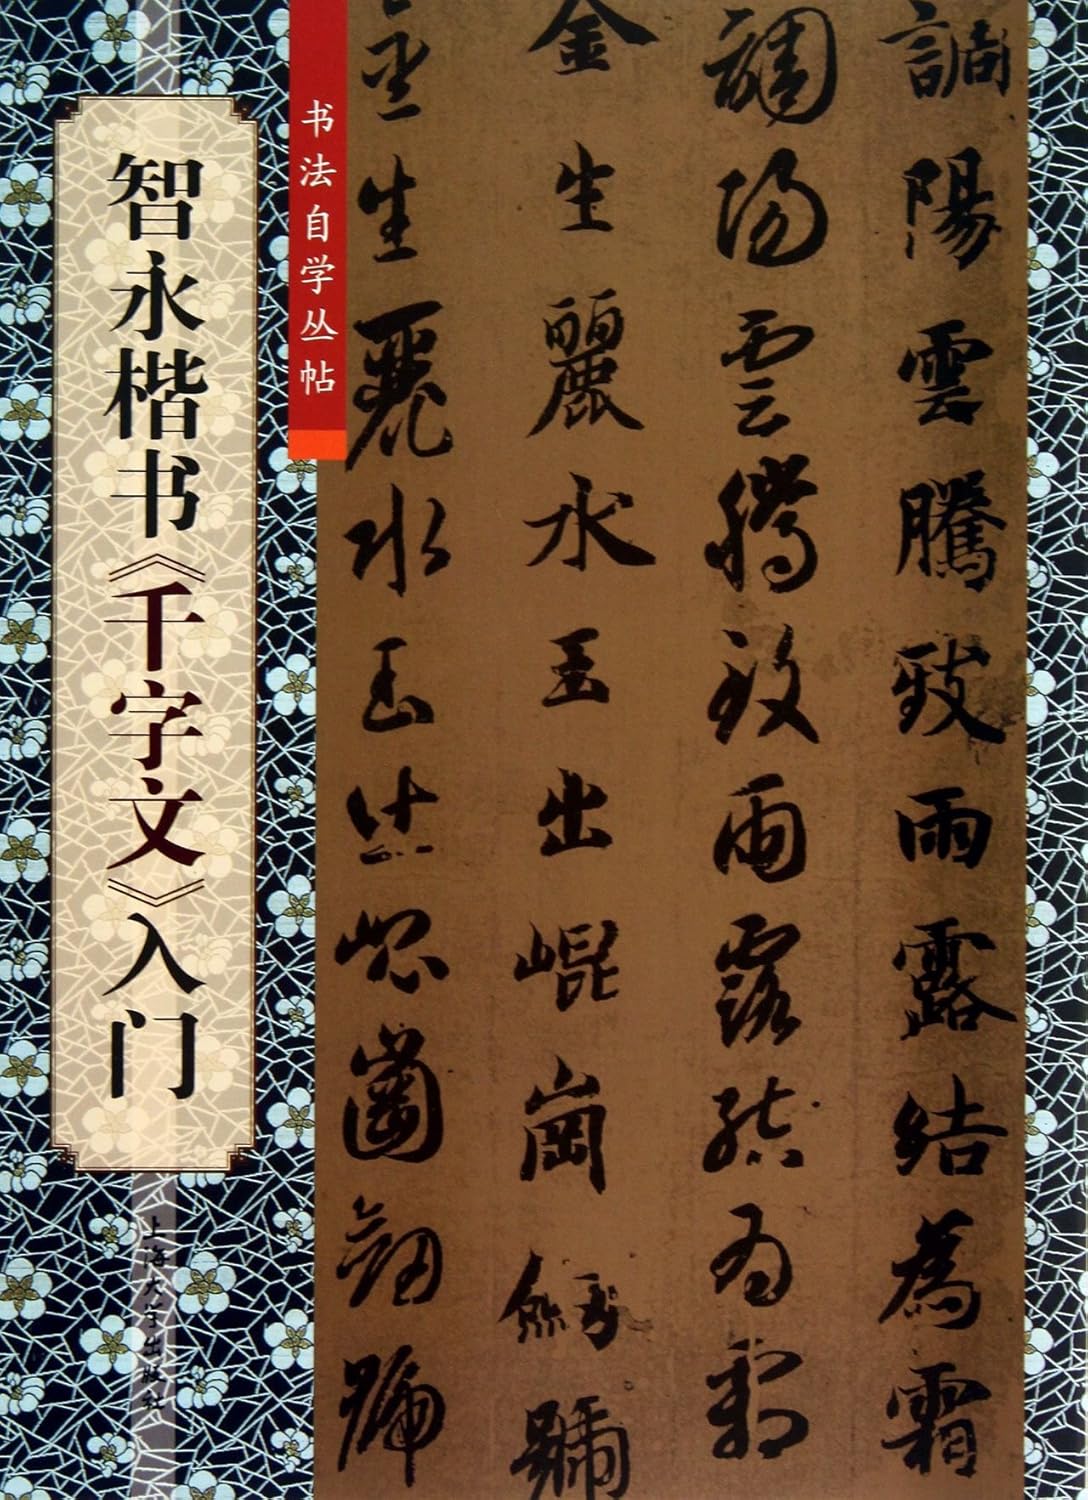 智永楷书《千字文》入门
书法自学丛帖
調陽雲騰致雨露結為霜
調陽雲騰致雨露結為霜
金生麗水玉出崐崗劒號
金生麗水玉出崐崗劒號
上海大学出版社